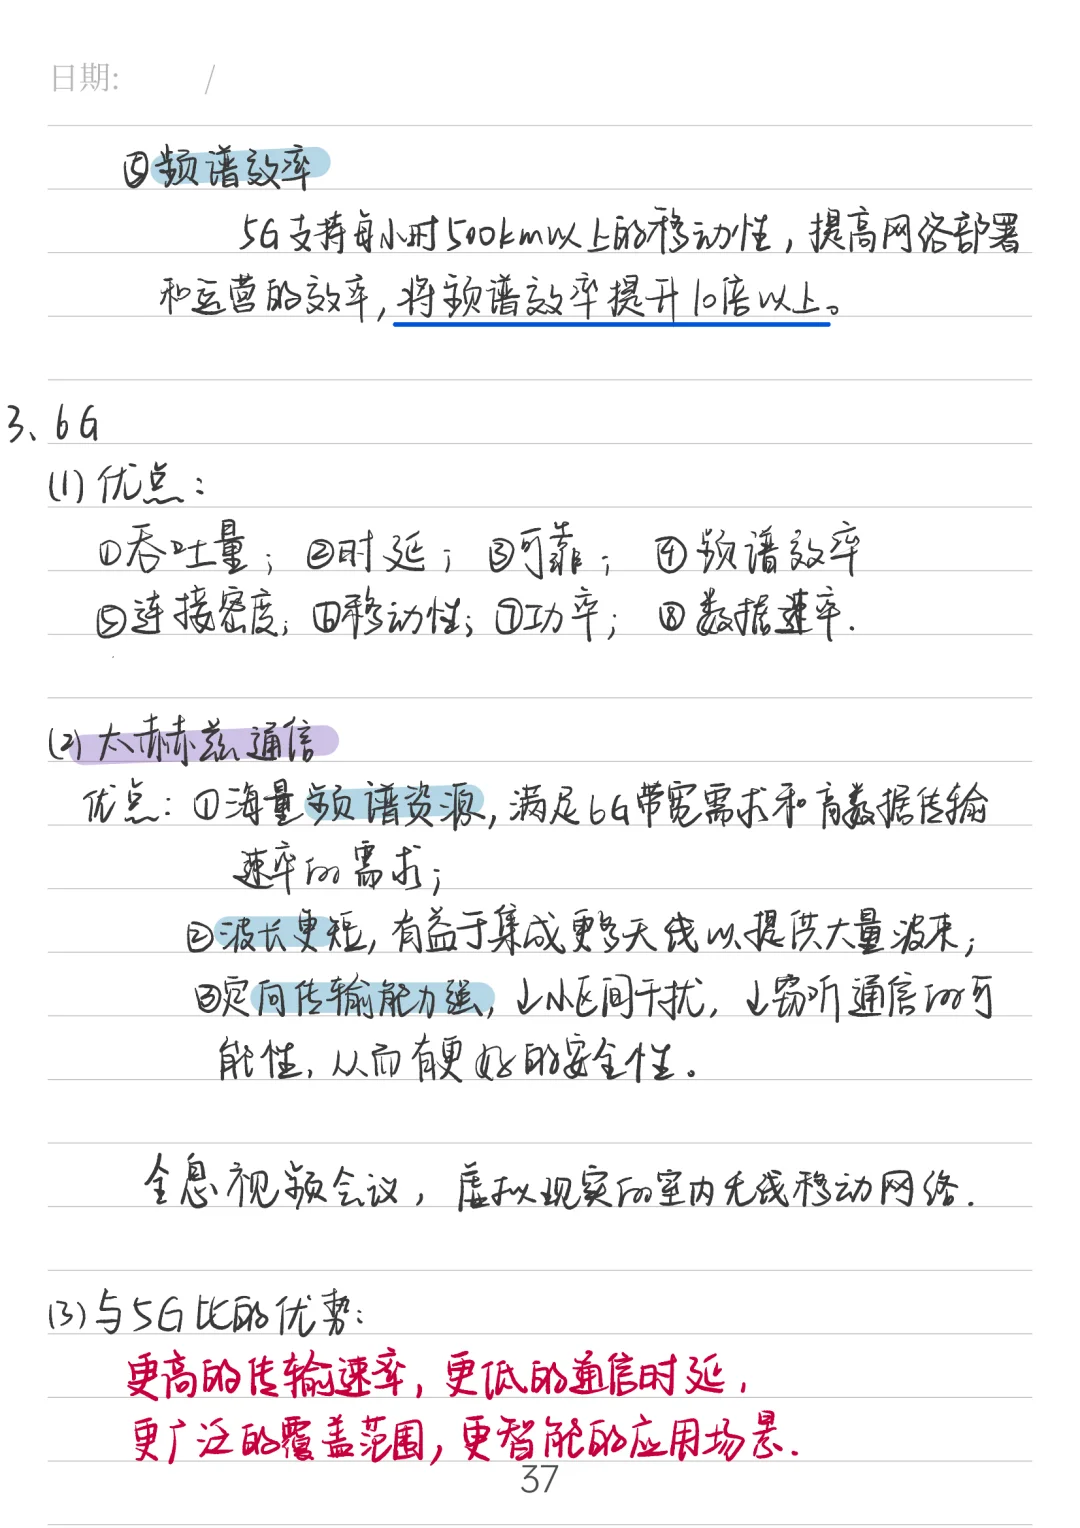 日期: /
⑤频谱效率
5G支持每小时500km以上的移动性，提高网络部署
和运营的效率，将频谱效率提升10倍以上。
3、6G
(1)优点：
①吞吐量；②时延；③可靠；④频谱效率
⑤连接密度；⑥移动性；⑦功率；⑧数据速率.
(2)太赫兹通信
优点：①海量频谱资源，满足6G带宽需求和高数据传输
速率的需求；
②波长更短，有益于集成更多天线以提供大量波束；
③定向传输能力强，↓小区间干扰，↓窃听通信的可
能性，从而有更好的安全性。
全息视频会议，虚拟现实的室内无线移动网络.
(3)与5G比的优势：
更高的传输速率，更低的通信时延，
更广泛的覆盖范围，更智能的应用场景.
37